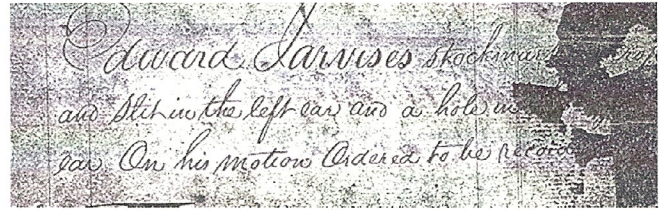 Edward Jarvises stockmark
and Slit in the left ear and a hole in
ear On his motion Ordered to be record